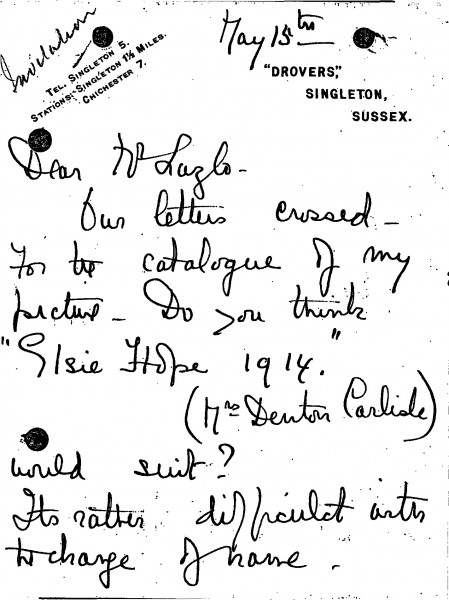 Invitation
May 15th
TEL. SINGLETON 5.
STATIONS:- SINGLETON 1½ MILES.
CHICHESTER 7.
"DROVERS,"
SINGLETON,
SUSSEX.
Dear Mr Lazlo -
Our letters crossed -
for the catalogue of my
picture - Do you think
"Elsie Hope 1914."
(Mrs Denton Carlisle)
would suit?
Its rather difficult with
the change of name.